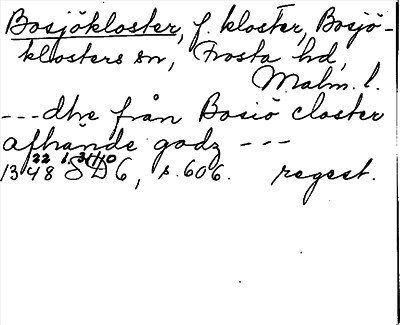 Bosjökloster, f. kloster, Bosjö-
klosters sn, Frosta hd,
Malm. l.
---dhe från Bosiö closter
afhände godz ---
1348 SD 6, s. 606. regest.